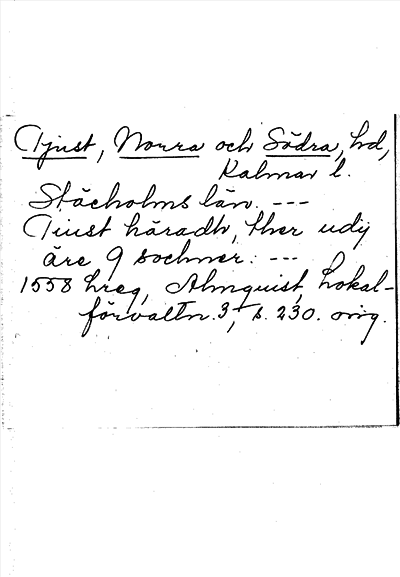 Tjust, Norra och Södra, hd,
Kalmar l.
Stächolms län. ---
Tiust häradh, ther udij
äre 9 sochner. ---
1558 hreg, Almquist, Lokal-
förvaltn. 3, s. 230. orig.